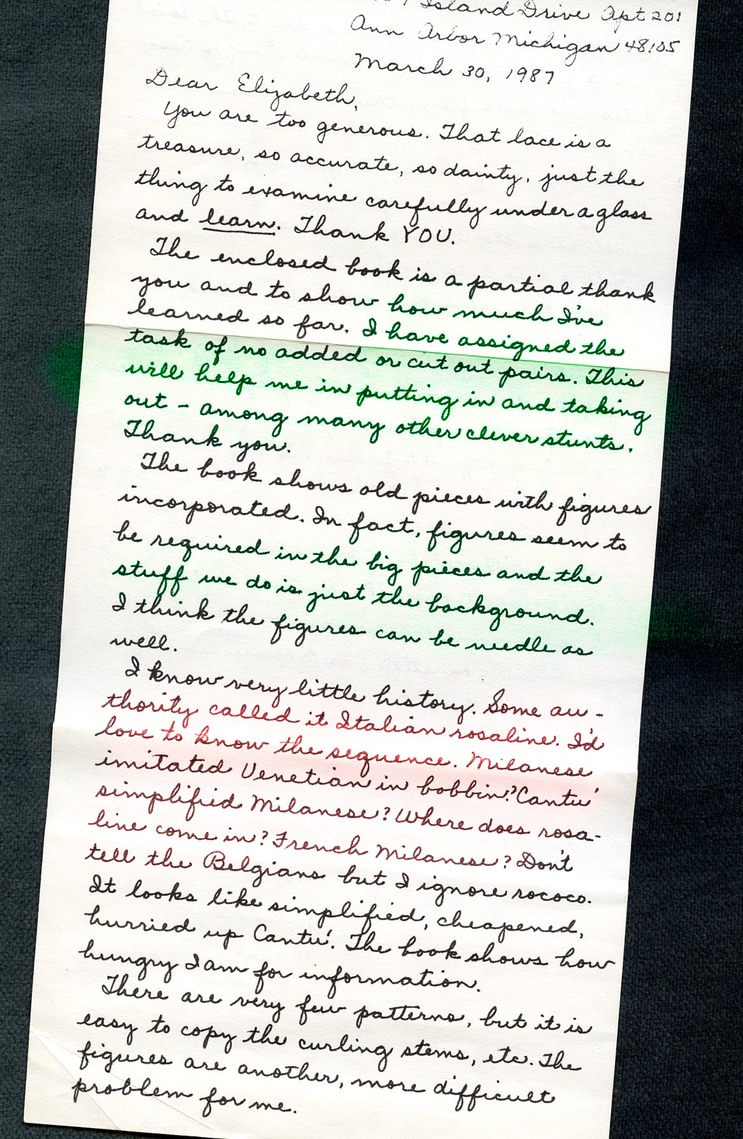 Island Drive Apt 201
Ann Arbor Michigan 48105
March 30, 1987
Dear Elizabeth,
You are too generous. That lace is a
treasure, so accurate, so dainty, just the
thing to examine carefully under a glass
and learn. Thank YOU.
The enclosed book is a partial thank
you and to show how much I've
learned so far. I have assigned the
task of no added or cut out pairs. This
will help me in putting in and taking
out - among many other clever stunts.
Thank you.
The book shows old pieces with figures
incorporated. In fact, figures seem to
be required in the big pieces and the
stuff we do is just the background.
I think the figures can be needle as
well.
I know very little history. Some au-
thority called it Italian rosaline. I'd
love to know the sequence. Milanese
imitated Venetian in bobbin? Cantu'
simplified Milanese? Where does rosa-
line come in? French Milanese? Don't
tell the Belgians but I ignore rococo.
It looks like simplified, cheapened,
hurried up Cantu'. The book shows how
hungry I am for information.
There are very few patterns, but it is
easy to copy the curling stems, etc. The
figures are another, more difficult
problem for me.